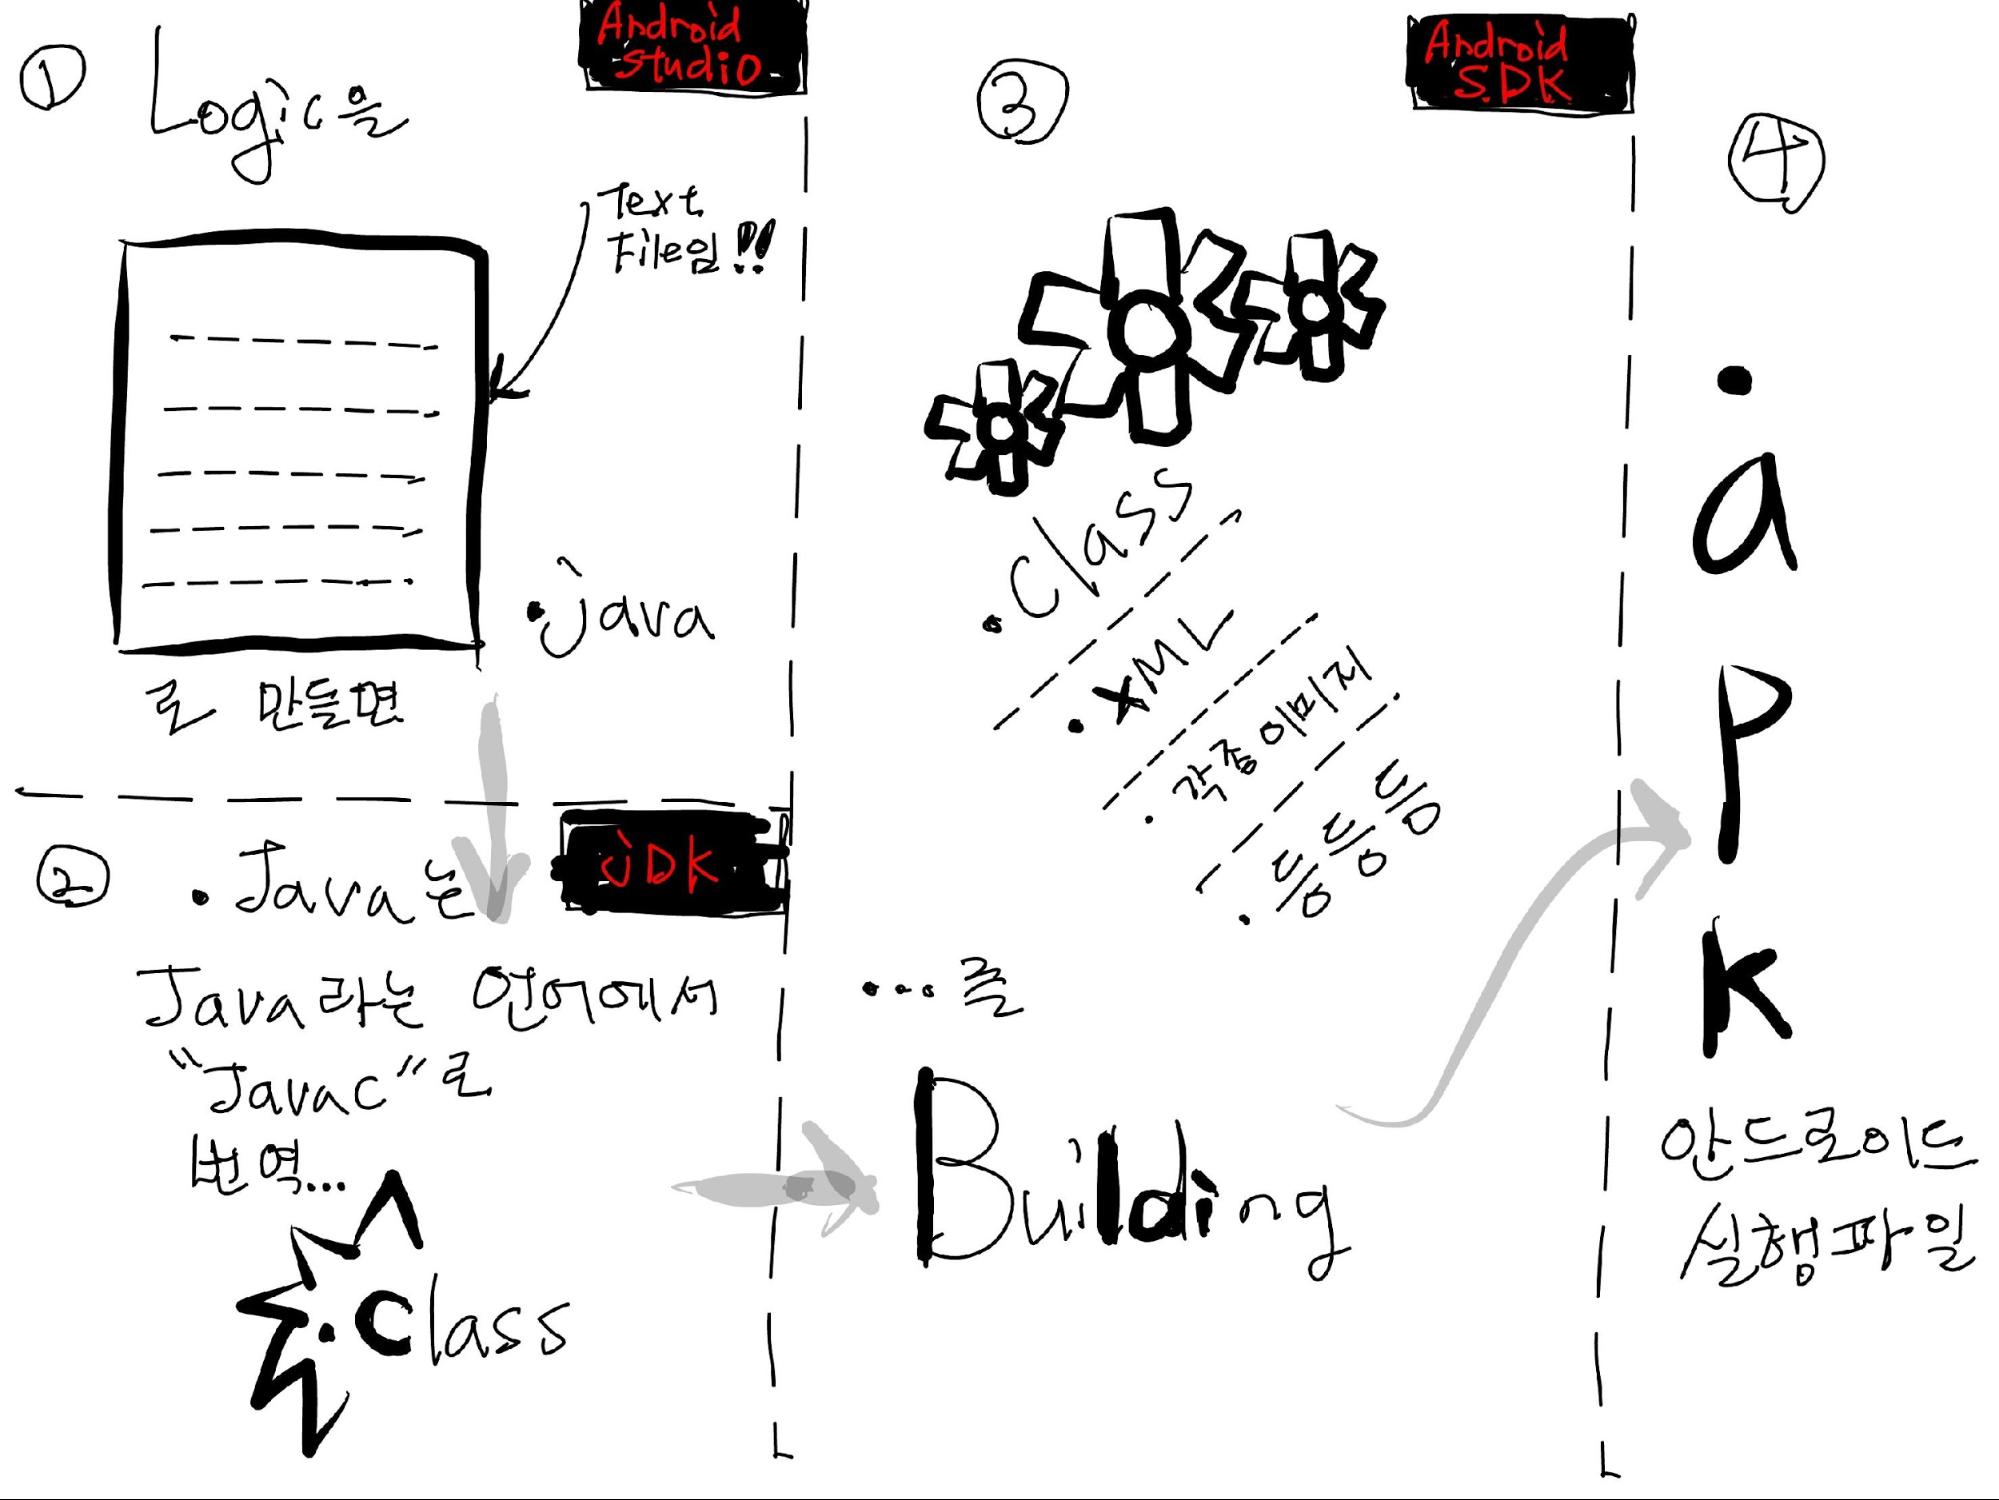 ①
Logic을
Android
Studio
Text
File임!!
.java
로 만들면
②
.Java는
JDK
Java라는 언어에서
"Javac"로
번역...
.class
③
Android
SDK
.class
.XML
.각종이미지
.등등등
...를
Building
④
.apk
안드로이드
실행파일